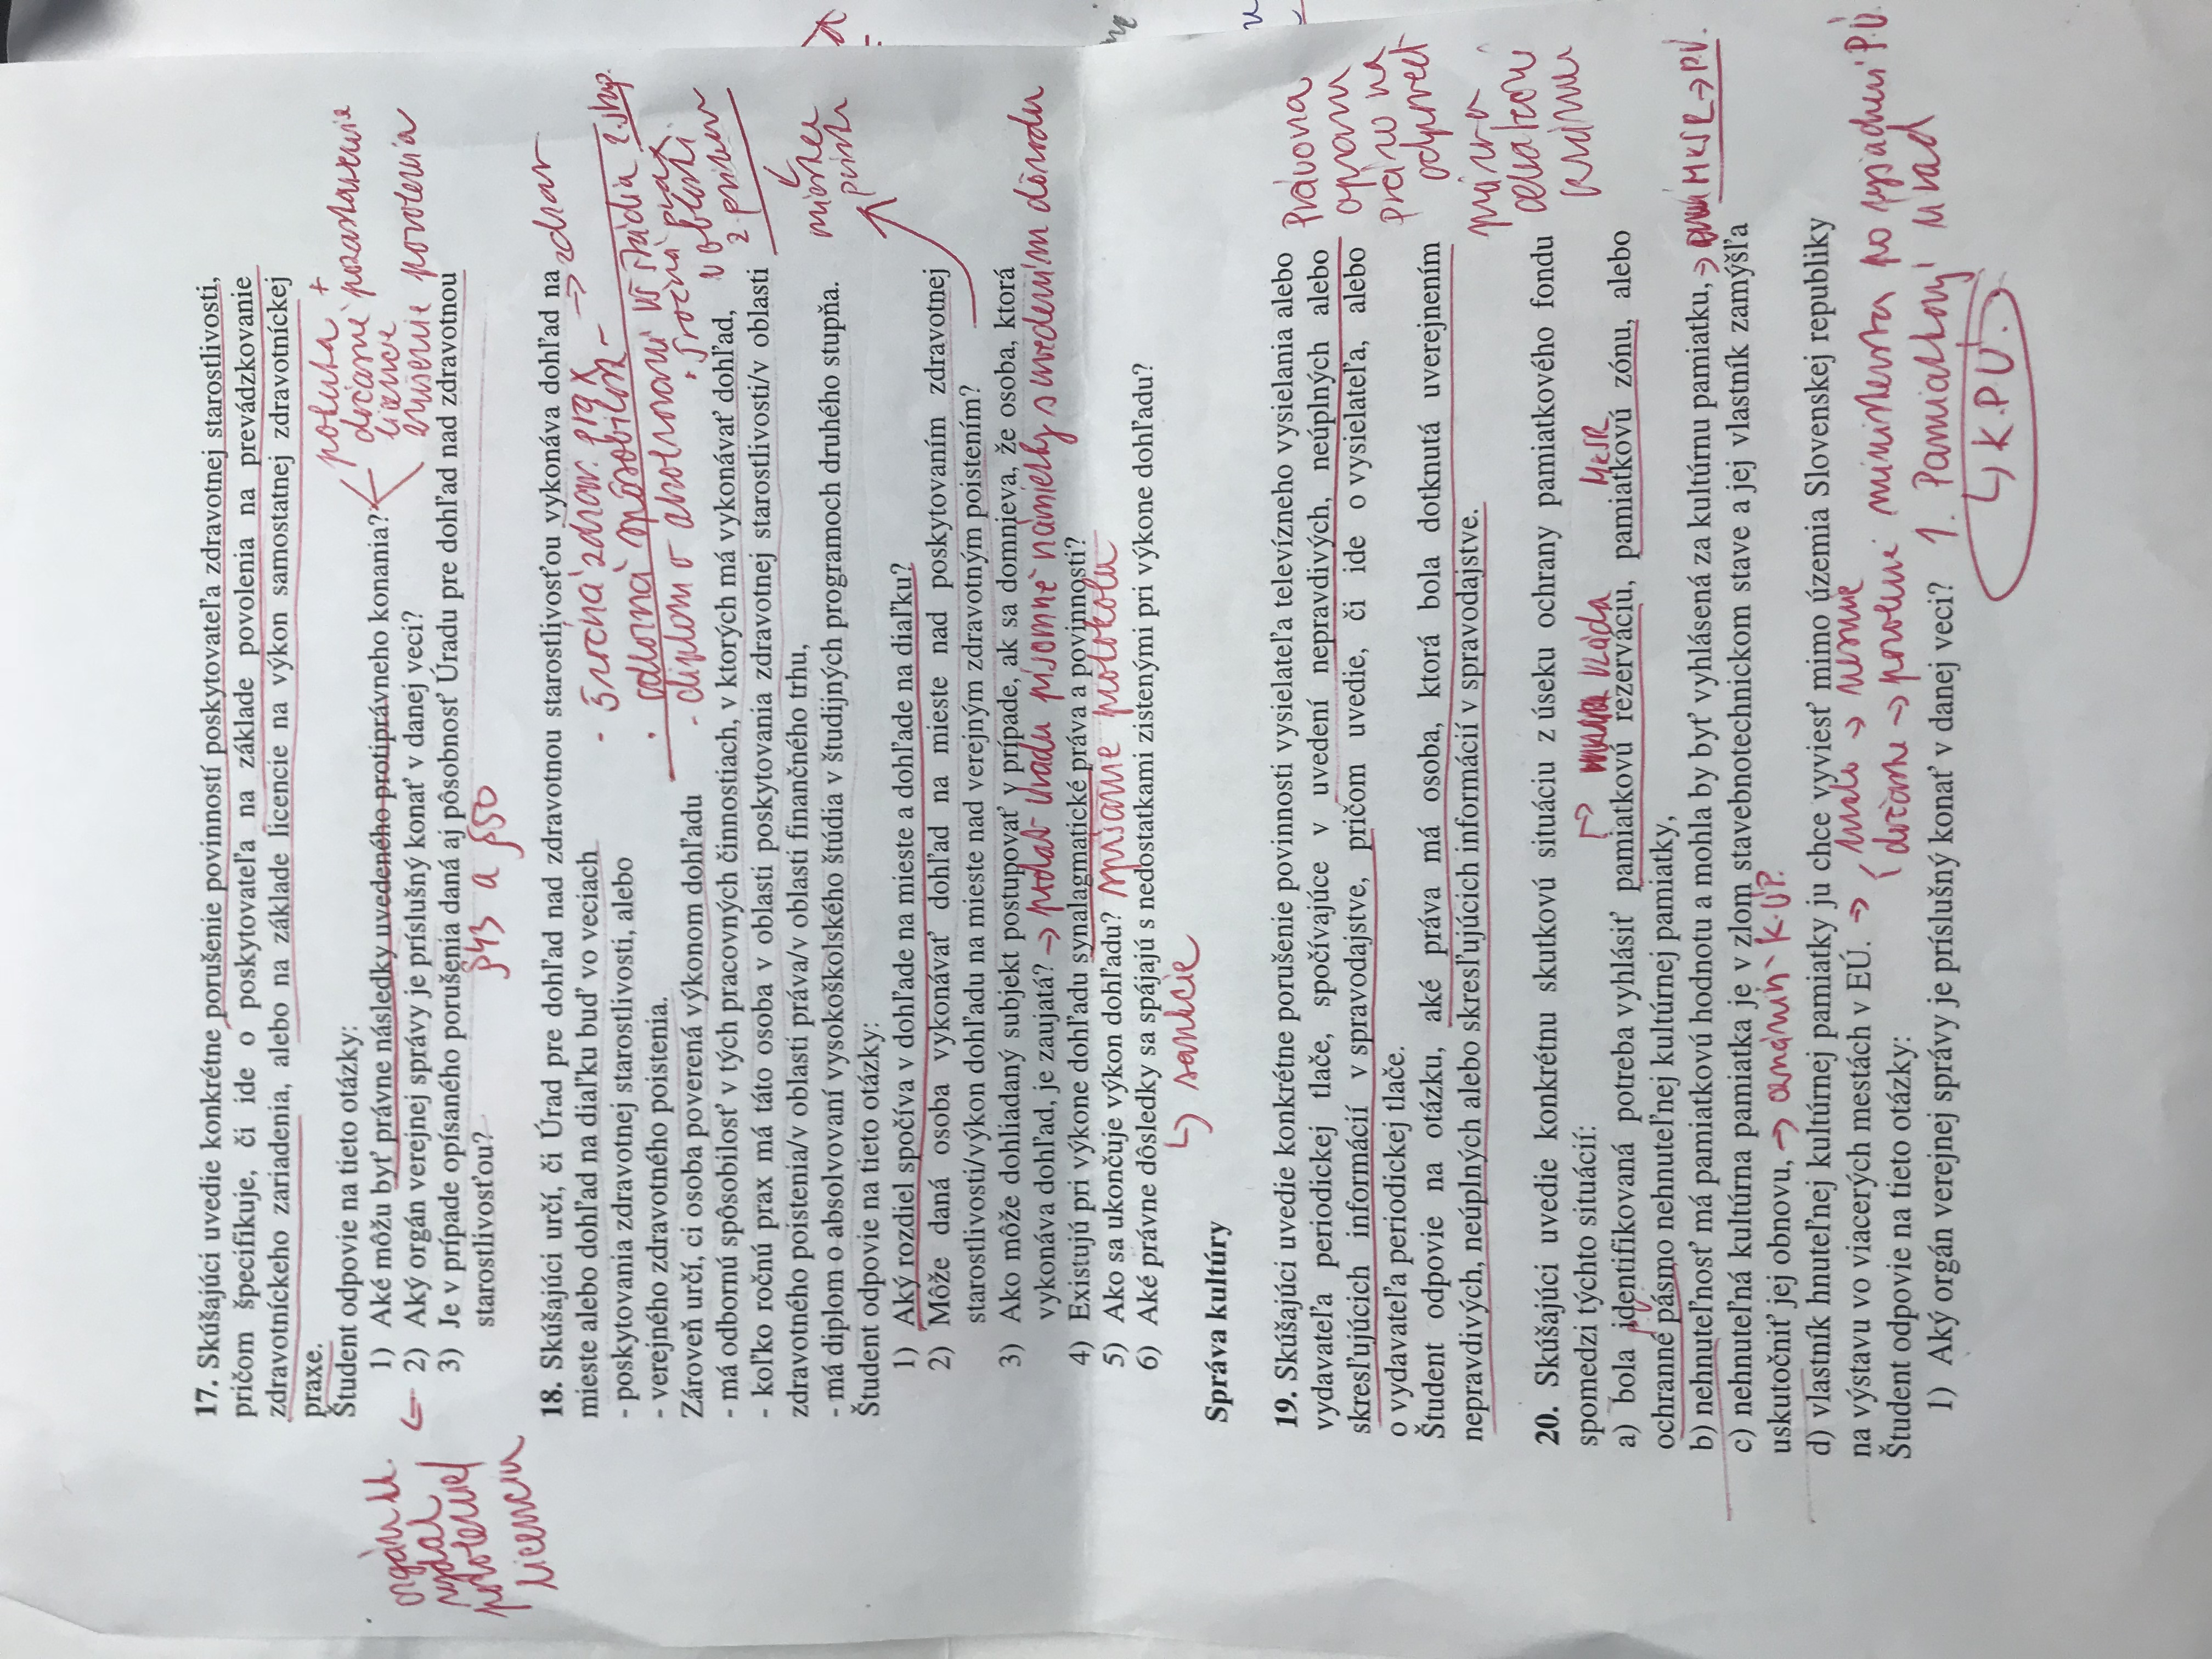 17. Skúšajúci uvedie konkrétne porušenie povinností poskytovateľa zdravotnej starostlivosti,
pričom špecifikuje, či ide o poskytovateľa na základe povolenia na prevádzkovanie
zdravotníckeho zariadenia, alebo na základe licencie na výkon samostatnej zdravotníckej
praxe.
Študent odpovie na tieto otázky:
1) Aké môžu byť právne následky uvedeného protiprávneho konania?
pokuta +
dočasné pozastavenie
licence
zrušenie povolenia
2) Aký orgán verejnej správy je príslušný konať v danej veci?
orgán
vydal
licenciu
3) Je v prípade opísaného porušenia daná aj pôsobnosť Úradu pre dohľad nad zdravotnou
starostlivosťou?
§43 a §50
18. Skúšajúci určí, či Úrad pre dohľad nad zdravotnou starostlivosťou vykonáva dohľad na
mieste alebo dohľad na diaľku buď vo veciach
- poskytovania zdravotnej starostlivosti, alebo
- verejného zdravotného poistenia.
Zároveň určí, ci osoba poverená výkonom dohľadu
- má odbornú spôsobilosť v tých pracovných činnostiach, v ktorých má vykonávať dohľad,
- koľko ročnú prax má táto osoba v oblasti poskytovania zdravotnej starostlivosti/v oblasti
zdravotného poistenia/v oblasti práva/v oblasti finančného trhu,
- má diplom o absolvovaní vysokoškolského štúdia v študijných programoch druhého stupňa.
- 5 ročná zdrav. prax
odborná spôsobilosť
- diplom o absolvovaní VŠ štúdia 2. stup.
Študent odpovie na tieto otázky:
1) Aký rozdiel spočíva v dohľade na mieste a dohľade na diaľku?
2) Môže daná osoba vykonávať dohľad na mieste nad poskytovaním zdravotnej
starostlivosti/výkon dohľadu na mieste nad verejným zdravotným poistením?
3) Ako môže dohliadaný subjekt postupovať v prípade, ak sa domnieva, že osoba, ktorá
vykonáva dohľad, je zaujatá? → podať úradu písomné námietky s uvedením dôvodu
4) Existujú pri výkone dohľadu synalagmatické práva a povinnosti?
5) Ako sa ukončuje výkon dohľadu? spísanie protokolu
6) Aké právne dôsledky sa spájajú s nedostatkami zistenými pri výkone dohľadu?
↳ sankcie
Správa kultúry
19. Skúšajúci uvedie konkrétne porušenie povinnosti vysielateľa televízneho vysielania alebo
vydavateľa periodickej tlače, spočívajúce v uvedení nepravdivých, neúplných alebo
skresľujúcich informácií v spravodajstve, pričom uvedie, či ide o vysielateľa, alebo
o vydavateľa periodickej tlače.
Študent odpovie na otázku, aké práva má osoba, ktorá bola dotknutá uverejnením
nepravdivých, neúplných alebo skresľujúcich informácií v spravodajstve.
Právo na
opravu
právo na
odpoveď
20. Skúšajúci uvedie konkrétnu skutkovú situáciu z úseku ochrany pamiatkového fondu
spomedzi týchto situácií:
vláda
MKSR
a) bola identifikovaná potreba vyhlásiť pamiatkovú rezerváciu, pamiatkovú zónu, alebo
ochranné pásmo nehnuteľnej kultúrnej pamiatky,
b) nehnuteľnosť má pamiatkovú hodnotu a mohla by byť vyhlásená za kultúrnu pamiatku, → MKSR → P.Ú.
c) nehnuteľná kultúrna pamiatka je v zlom stavebnotechnickom stave a jej vlastník zamýšľa
uskutočniť jej obnovu, → oznámiť K.ÚP.
d) vlastník hnuteľnej kultúrnej pamiatky ju chce vyviesť mimo územia Slovenskej republiky
na výstavu vo viacerých mestách v EÚ. → trvalo → nesmie
dočasne → povolení ministerstva po vyjadrení P.Ú.
Študent odpovie na tieto otázky:
1) Aký orgán verejnej správy je príslušný konať v danej veci? 1. Pamiatkový úrad
↳ K.P.Ú.